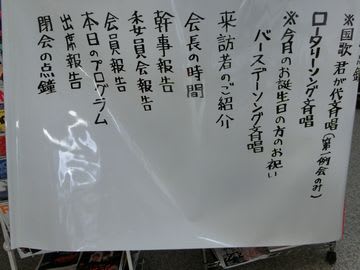 ※国歌 君が代斉唱(第一例会のみ)
ロータリーソング斉唱
※今月のお誕生日の方のお祝い
バースデーソング斉唱
来訪者のご紹介
会長の時間
幹事報告
委員会報告
会員報告
本日のプログラム
出席報告
閉会の点鐘